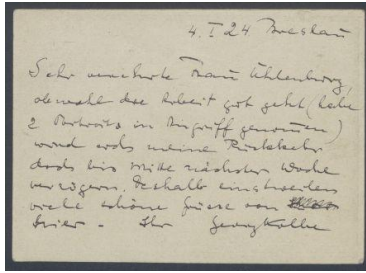 4. I 24 Breslau
Sehr verehrte Frau Uhlenburg,
obwohl die Arbeit gut geht (habe
2 Portraits in Angriff genommen)
wird sich meine Rückkehr
doch bis Mitte nächster Woche
verzögern. Deshalb einstweilen
viele schöne Grüsse von
Ihr Georg Kolbe